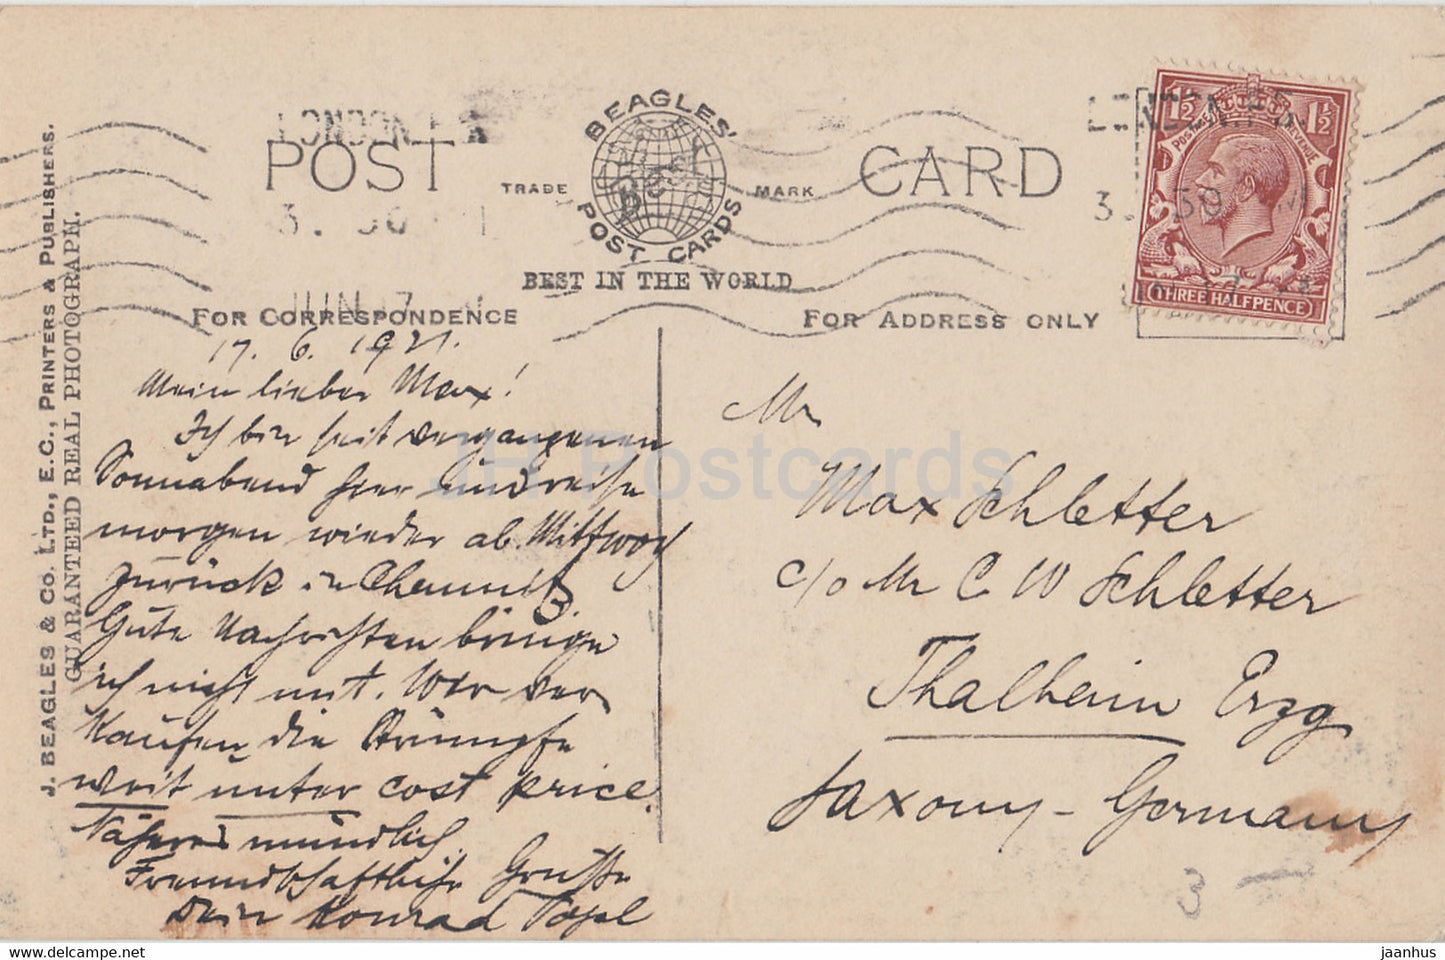 LONDON. F.S.
LONDON. F.S.
3. 30
3. 30
JUN 17
BEAGLES'
Best
POST CARDS
POST
TRADE
MARK
CARD
BEST IN THE WORLD
POSTAGE
REVENUE
1½
1½
THREE HALFPENCE
FOR CORRESPONDENCE
FOR ADDRESS ONLY
J. BEAGLES & CO. LTD., E.C., PRINTERS & PUBLISHERS.
GUARANTEED REAL PHOTOGRAPH.
17. 6. 1921.
Mein lieber Max!
Ich bin seit vergangenen
Sonnabend hier und reise
morgen wieder ab. Mittwoch
zurück in Chemnitz.
Gute Nachrichten bringe
ich nicht mit. Wir ver
kaufen die Strümpfe
weit unter cost price.
Näheres mündlich.
Freundschaftliche Grüße
Dein Konrad Vogel
Mr
Max Schletter
c/o Mr C. W Schletter
Thalheim Erzg
Saxony - Germany
3
JH Postcards
www.hippostcard.com
jaanhus